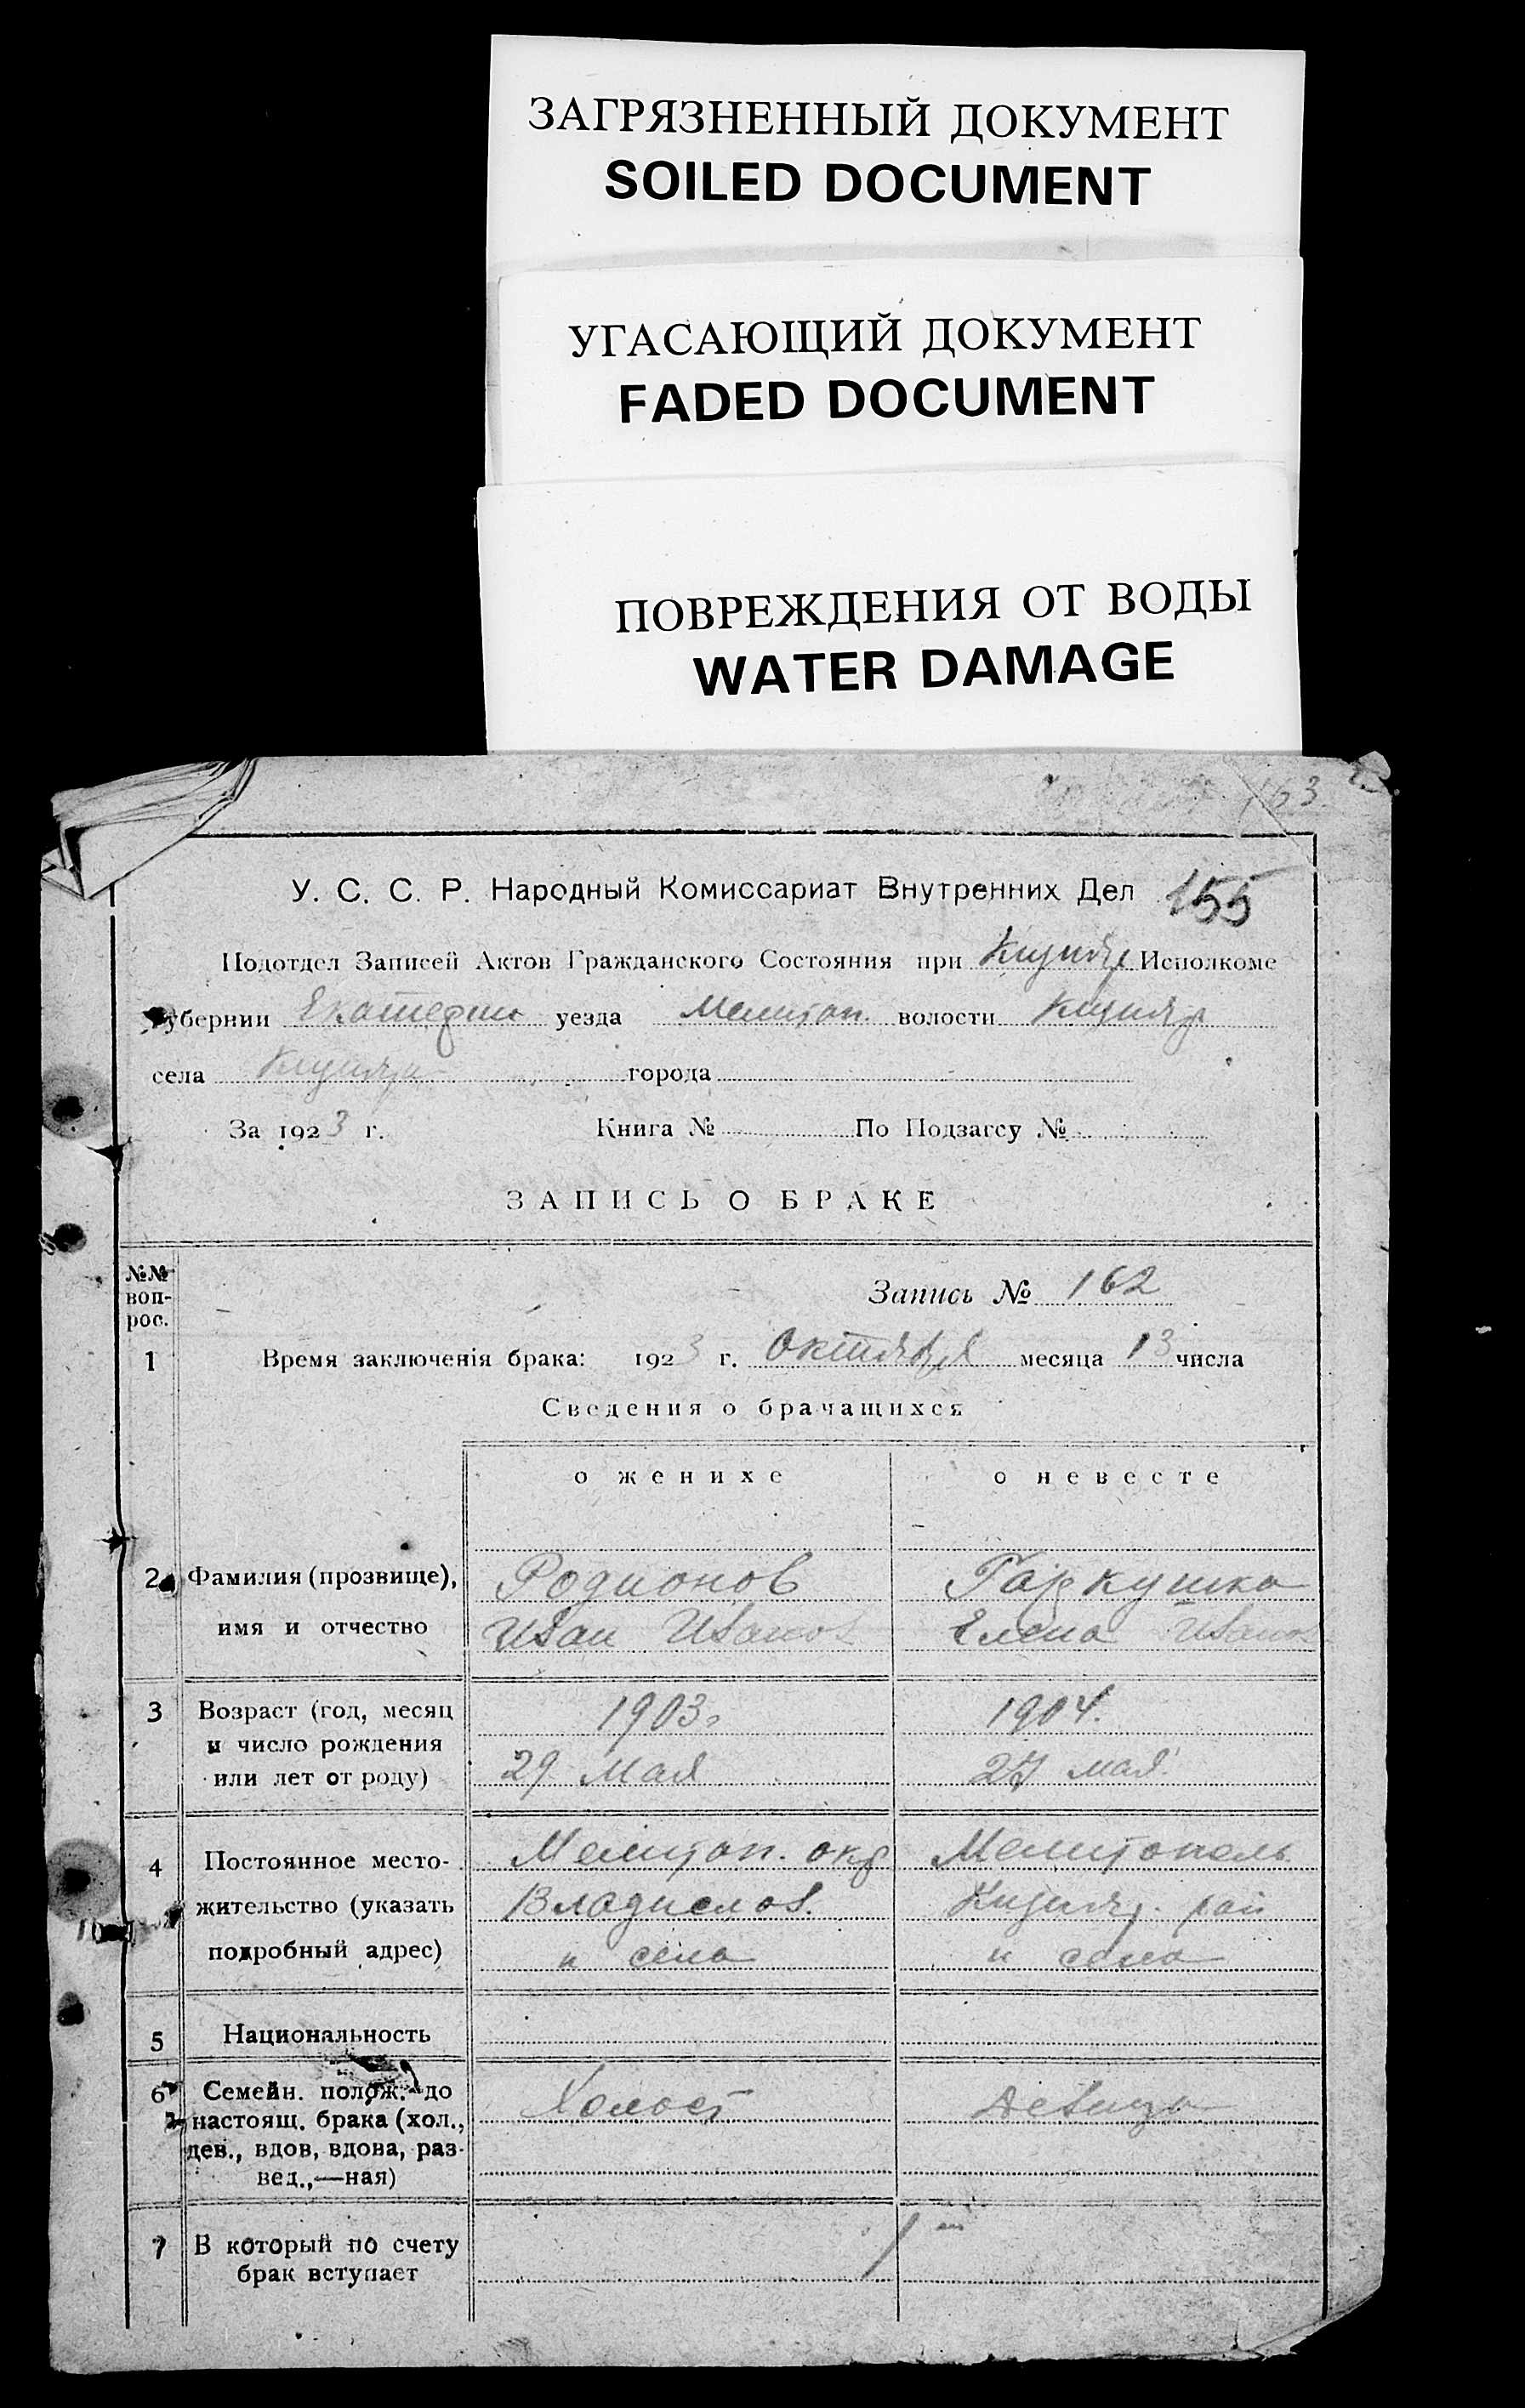 ЗАГРЯЗНЕННЫЙ ДОКУМЕНТ
SOILED DOCUMENT
УГАСАЮЩИЙ ДОКУМЕНТ
FADED DOCUMENT
ПОВРЕЖДЕНИЯ ОТ ВОДЫ
WATER DAMAGE
163
У. С. С. Р. Народный Комиссариат Внутренних Дел 155
Подотдел Записей Актов Гражданского Состояния при Кизияр Исполкоме
Губернии Екатерин уезда Мелитоп. волости Кизияр
села Кизияр города
За 1923 г. Книга № По Подзагсу №
ЗАПИСЬ О БРАКЕ
№№ воп-
рос.
Запись № 162
1 Время заключенія брака: 1923 г. Октября месяца 13 числа
Сведения о брачащихся
о женихе о невесте
2 Фамилия (прозвище), Родионов Гаркушка
имя и отчество Иван Иванов Елена Иванов
3 Возраст (год, месяц 1903г 1904.
и число рождения
или лет от роду) 29 Мая 27 мая
4 Постоянное место- Мелитоп. окр Мелитополь
жительство (указать Владислов. Кизияр. рай
подробный адрес) и села и села
5 Национальность
6 Семейн. полож. до Холост Девица
настоящ. брака (хол.,
дев., вдов, вдова, раз-
вед.,—ная)
7 В который по счету 1
брак вступает